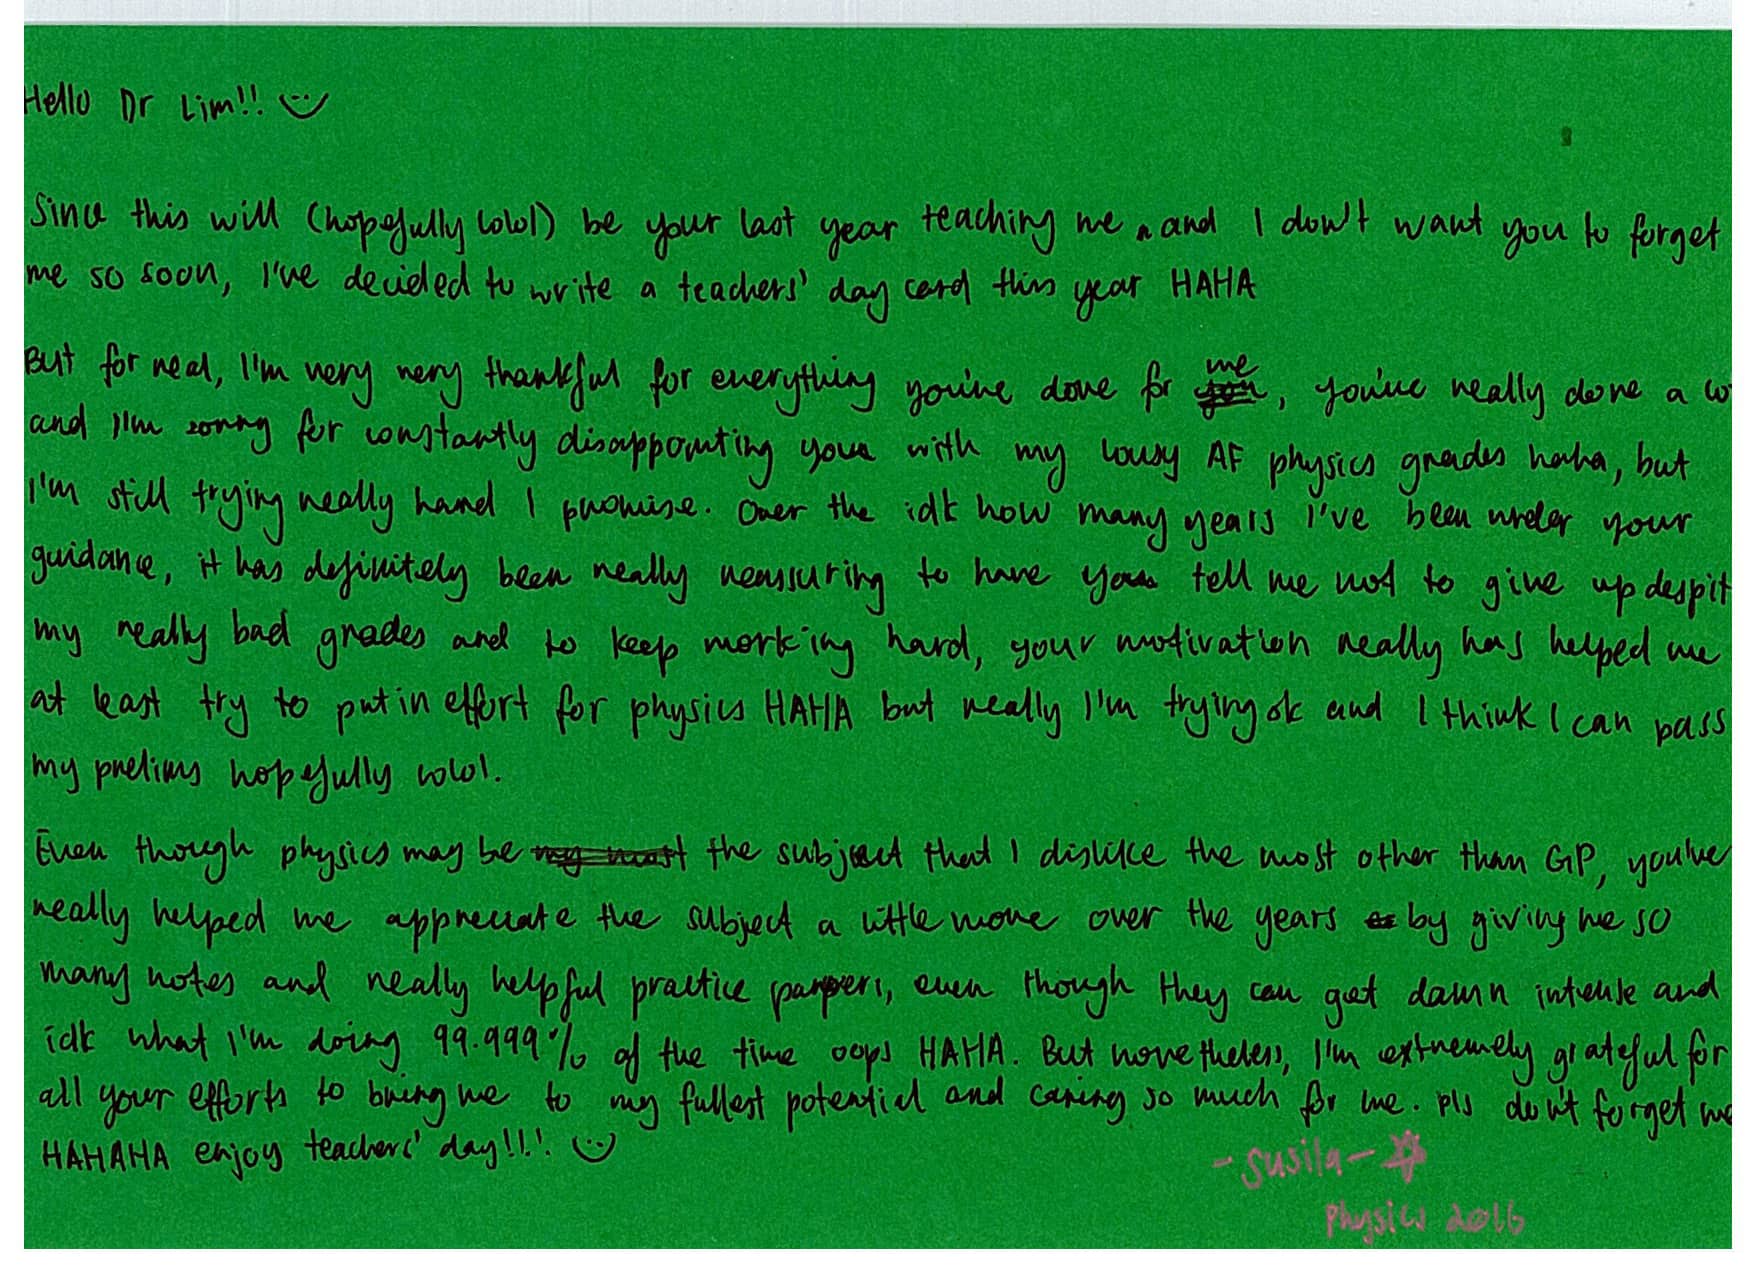 Hello Dr Lim!! :)
Since this will (hopefully lolol) be your last year teaching me, and I don't want you to forget
me so soon, I've decided to write a teachers' day card this year HAHA
But for real, I'm very very thankful for everything you've done for me, you've really done a lo
and I'm sorry for constantly disappointing you with my lousy AF physics grades haha, but
I'm still trying really hard I promise. Over the idk how many years I've been under your
guidance, it has definitely been really reassuring to have you tell me not to give up despit
my really bad grades and to keep working hard, your motivation really has helped me
at least try to put in effort for physics HAHA but really I'm trying ok and I think I can pass
my prelims hopefully lolol.
Even though physics may be the subject that I dislike the most other than GP, you've
really helped me appreciate the subject a little more over the years by giving me so
many notes and really helpful practice papers, even though they can get damn intense and
idk what I'm doing 99.999% of the time oops HAHA. But nonetheless, I'm extremely grateful for
all your efforts to bring me to my fullest potential and caring so much for me. pls don't forget me
HAHAHA enjoy teachers' day!!! :)
- Susila -
Physics 2016